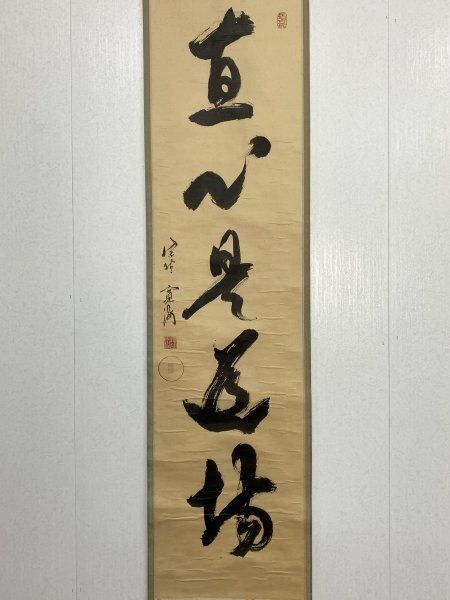 直心是道場